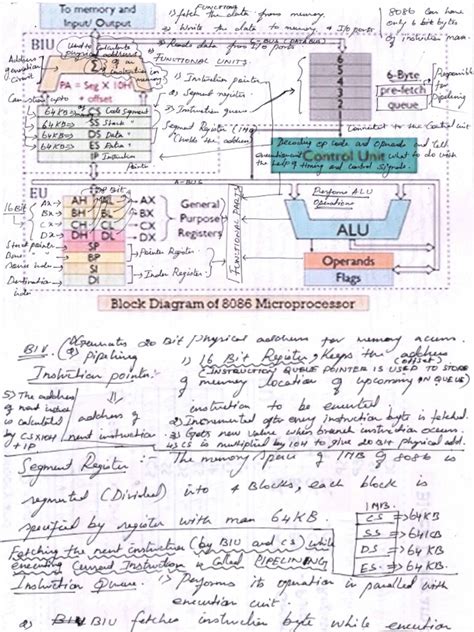 To memory and
Input/ Output
FUNCTIONS
1) fetch the data from memory.
2) Write the data to memory & I/o ports
3) Reads data from I/o ports
8086 can have
only 6 bit bytes
of instruction
BIU
Used to calculate
physical address
Address
generation
circuit
Σ
PA = Seg X 10H
+ offset
FUNCTIONAL UNITS:
1) Instruction pointer
2) Segment register
3) Instruction queue
Segment Register (1MB)
(holds the address)
64KB
CS
Code Segment
64KB
SS
Stack "
64KB
DS
Data "
64KB
ES
Extra "
IP
Instruction
pointer
6
5
4
3
2
6-Byte
pre-fetch
queue
Responsible
for
Pipelining
Connected to the Control unit
Decoding op code and operands and tell
Control Unit
what to do with
the help of timing and control signals.
A-BUS
EU
16Bit
8 Bit
Ax
Bx
Cx
Dx
AH AL
BH BL
CH CL
DH DL
SP
BP
SI
DI
AX
BX
CX
DX
General
Purpose
Registers
Stack pointer
Base "
Source index
Destination
index
Pointer Register
Index Register
FUNCTIONAL PARTS
Perform ALU
Operations
ALU
Operands
Flags
Block Diagram of 8086 Microprocessor
BIU
(1) Generates 20 Bit physical address for memory access.
(2) pipelining
Instruction pointer:
1) 16 Bit Register, Keeps the address
(offset)
(INSTRUCTION QUEUE POINTER IS USED TO STORE
of memory location of upcoming IN QUEUE)
instruction to be executed.
5) The address
of next instruc
is calculated
by CSX10H
+IP
address of
next instruction
2) Incremented after every instruction byte is fetched.
3) Gets new value when branch instruction occurs.
4) CS is multiplied by 10H to give 20 Bit physical add.
Segment Register :- The memory space of 1MB of 8086 is
segmented (Divided) into 4 Blocks, each block is
specified by register with max 64KB.
1MB.
CS => 64KB
SS => 64KB
DS => 64KB
ES => 64KB
Fetching the next instruction (by BIU and CS) while
executing Current Instruction is Called PIPELINING
Instruction Queue. 1) Performs its operation in parallel with
execution unit.
2) BIU fetches instruction byte while execution